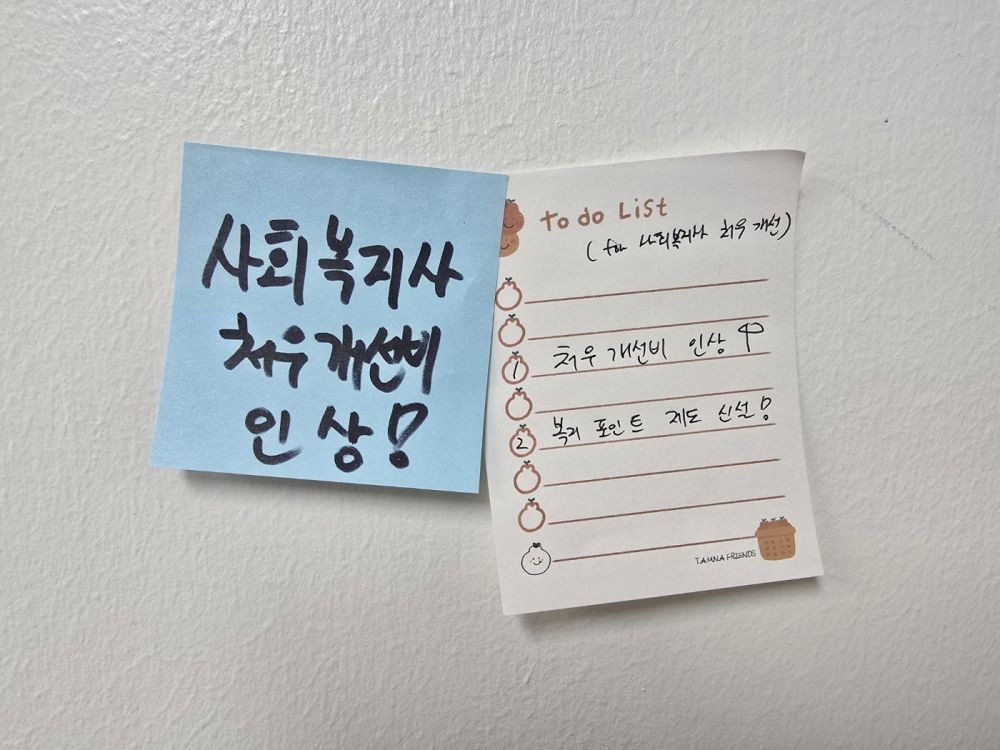 사회복지사
처우개선비
인상!
To do List
(for 사회복지사 처우개선)
1 처우개선비 인상
2 복지 포인트 제도 신설!
TAMNA FRIENDS